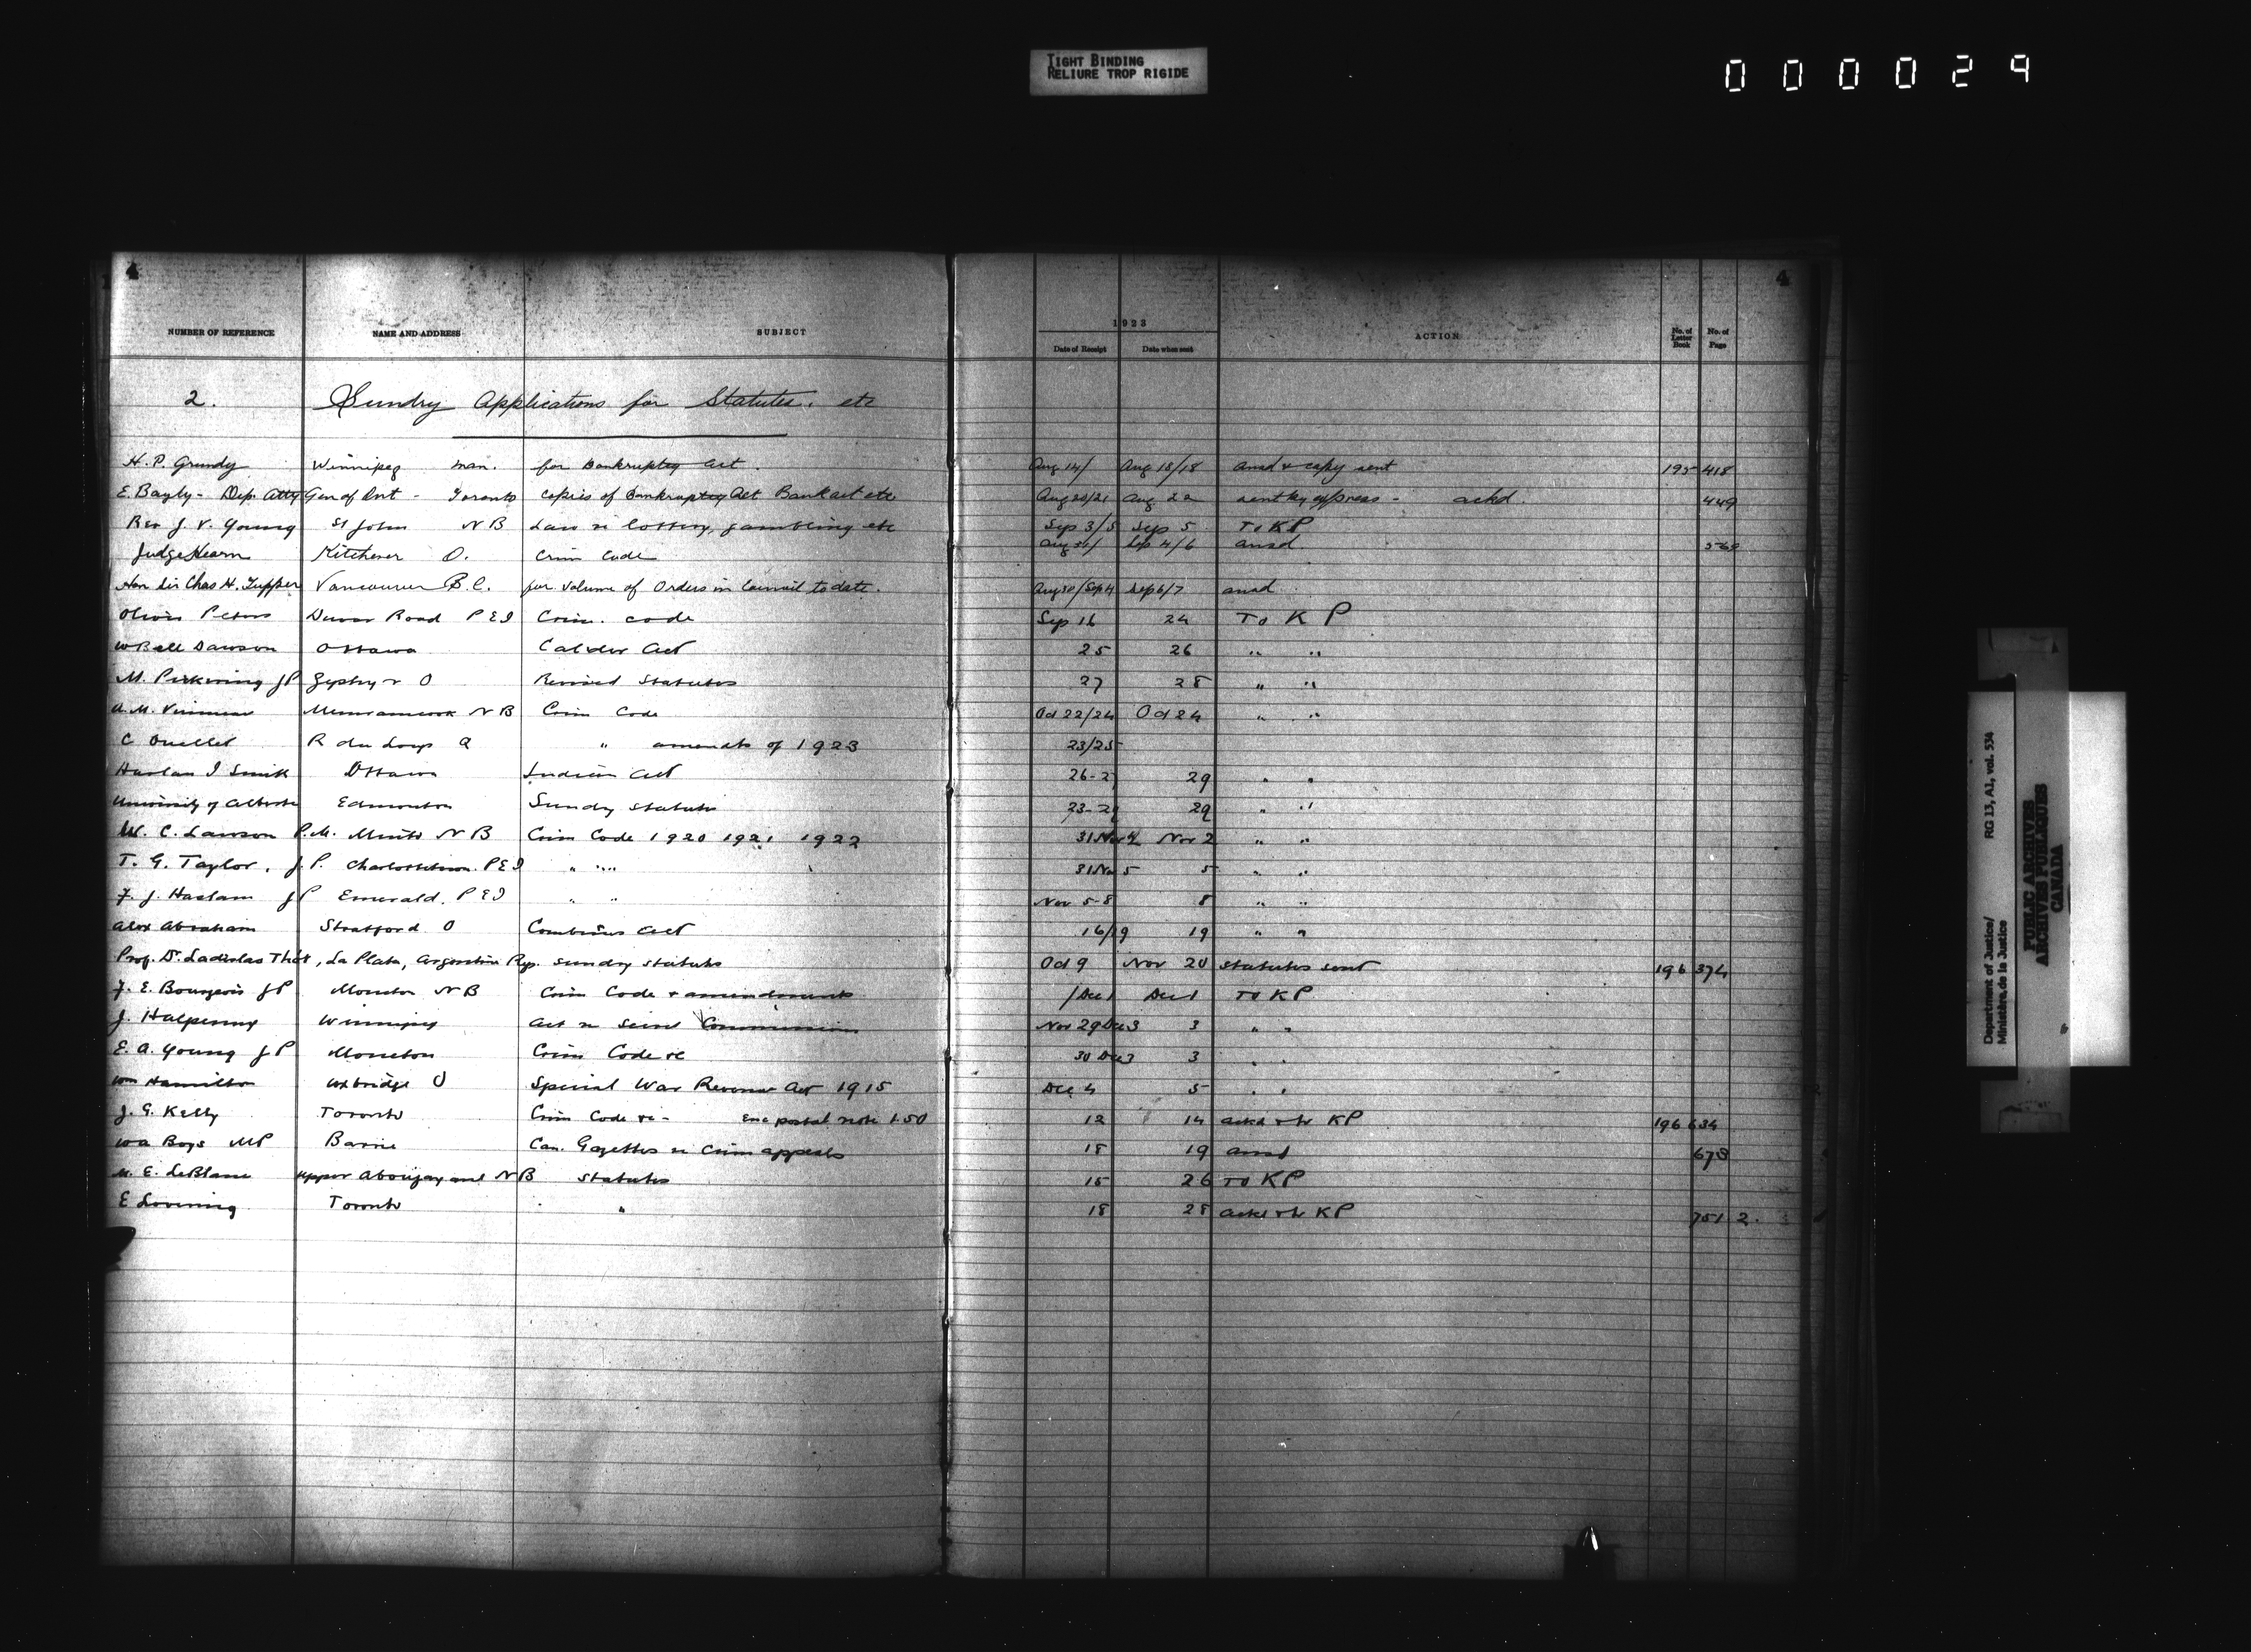 TIGHT BINDING
RELIURE TROP RIGIDE
0 0 0 0 2 9
4 4
NUMBER OF REFERENCE NAME AND ADDRESS SUBJECT 1923 ACTION No. of Letter Book No. of Page
Date of Receipt Date when sent
2. Sundry Applications for Statutes. etc
H. P. Grundy Winnipeg Man. for Bankruptcy Act. Aug 14/ Aug 18/18 ansd & copy sent 195 418
E. Bayly - Dep. Atty Gen of Ont - Toronto copies of Bankruptcy Act Bank act etc Aug 20/21 Aug 22 sent by express - ackd. 449
Rev J. V. Young St John N B Law re lottery, gambling etc Sep 3/5 Sep 5 To KP
Judge Hearn Kitchener O. Crim Code Aug 31/ Sep 4/6 ansd
Hon Sir Chas H. Tupper Vancouver B.C. for volume of Orders in Council to date. Aug 30/Sep 4 Sep 6/7 ansd
Oliver Peters Road P E I Crim. Code Sep 16 24 To K P
W Bell Dawson Ottawa Calder Act 25 26 " "
M. Pickering JP Zephyr O Revised Statutes 27 28 " "
A. M. Memramcook N B Crim Code Oct 22/24 Oct 24 " "
C Ouellet R du Loup Q " amendts of 1923 23/25
Harlan I Smith Ottawa Indian Act 26-27 29 " "
University of Alberta Edmonton Sundry statutes 23-29 29 " "
W. C. Lawson P.M. Minto N B Crim Code 1920 1921 1922 31 Nov 2 Nov 2 " "
T. G. Taylor, J.P. Charlottetown P E I " " " 31 Nov 5 5 " "
F. J. Haslam JP Emerald. P E I " " Nov 5-8 8 " "
Alex Abraham Stratford O Combines Act 16/19 19 " "
Prof. Dr. Ladislas Thot, La Plata, Argentine Rep. Sundry statutes Oct 9 Nov 20 statutes sent 196 374
F. E. Bourgeois JP Moncton N B Crim Code & amendments /Dec 1 Dec 1 To KP
J. Halpenny Winnipeg Act re Commission Nov 29 Dec 3 3 " "
E. A. Young JP Moncton Crim Code &c 30 Dec 3 3 " "
Wm Hamilton Uxbridge O Special War Revenue Act 1915 Dec 4 5 " "
J. G. Kelly Toronto Crim Code &c - Enc postal note 1.50 12 14 ackd & to KP 196 634
W A Boys MP Barrie Can. Gazettes re Crim appeals 18 19 ansd 673
E. LeBlanc Upper N B statutes 15 26 To KP
E Lovering Toronto " 18 28 ackd & to KP 751 2.
Department of Justice/ RG 13, A1, vol. 534
Ministère de la Justice
PUBLIC ARCHIVES
ARCHIVES PUBLIQUES
CANADA